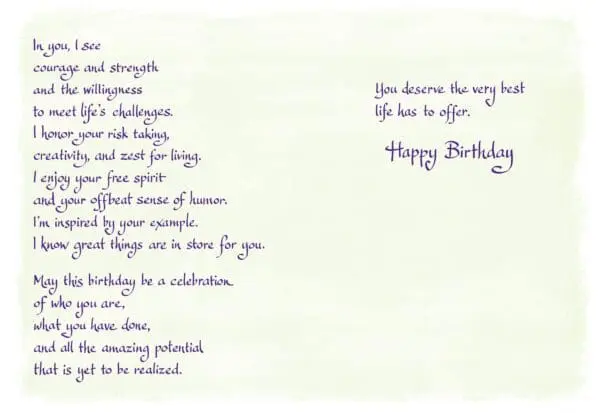 In you, I see
courage and strength
and the willingness
to meet life's challenges.
I honor your risk taking,
creativity, and zest for living.
I enjoy your free spirit
and your offbeat sense of humor.
I'm inspired by your example.
I know great things are in store for you.
May this birthday be a celebration
of who you are,
what you have done,
and all the amazing potential
that is yet to be realized.
You deserve the very best
life has to offer.
Happy Birthday